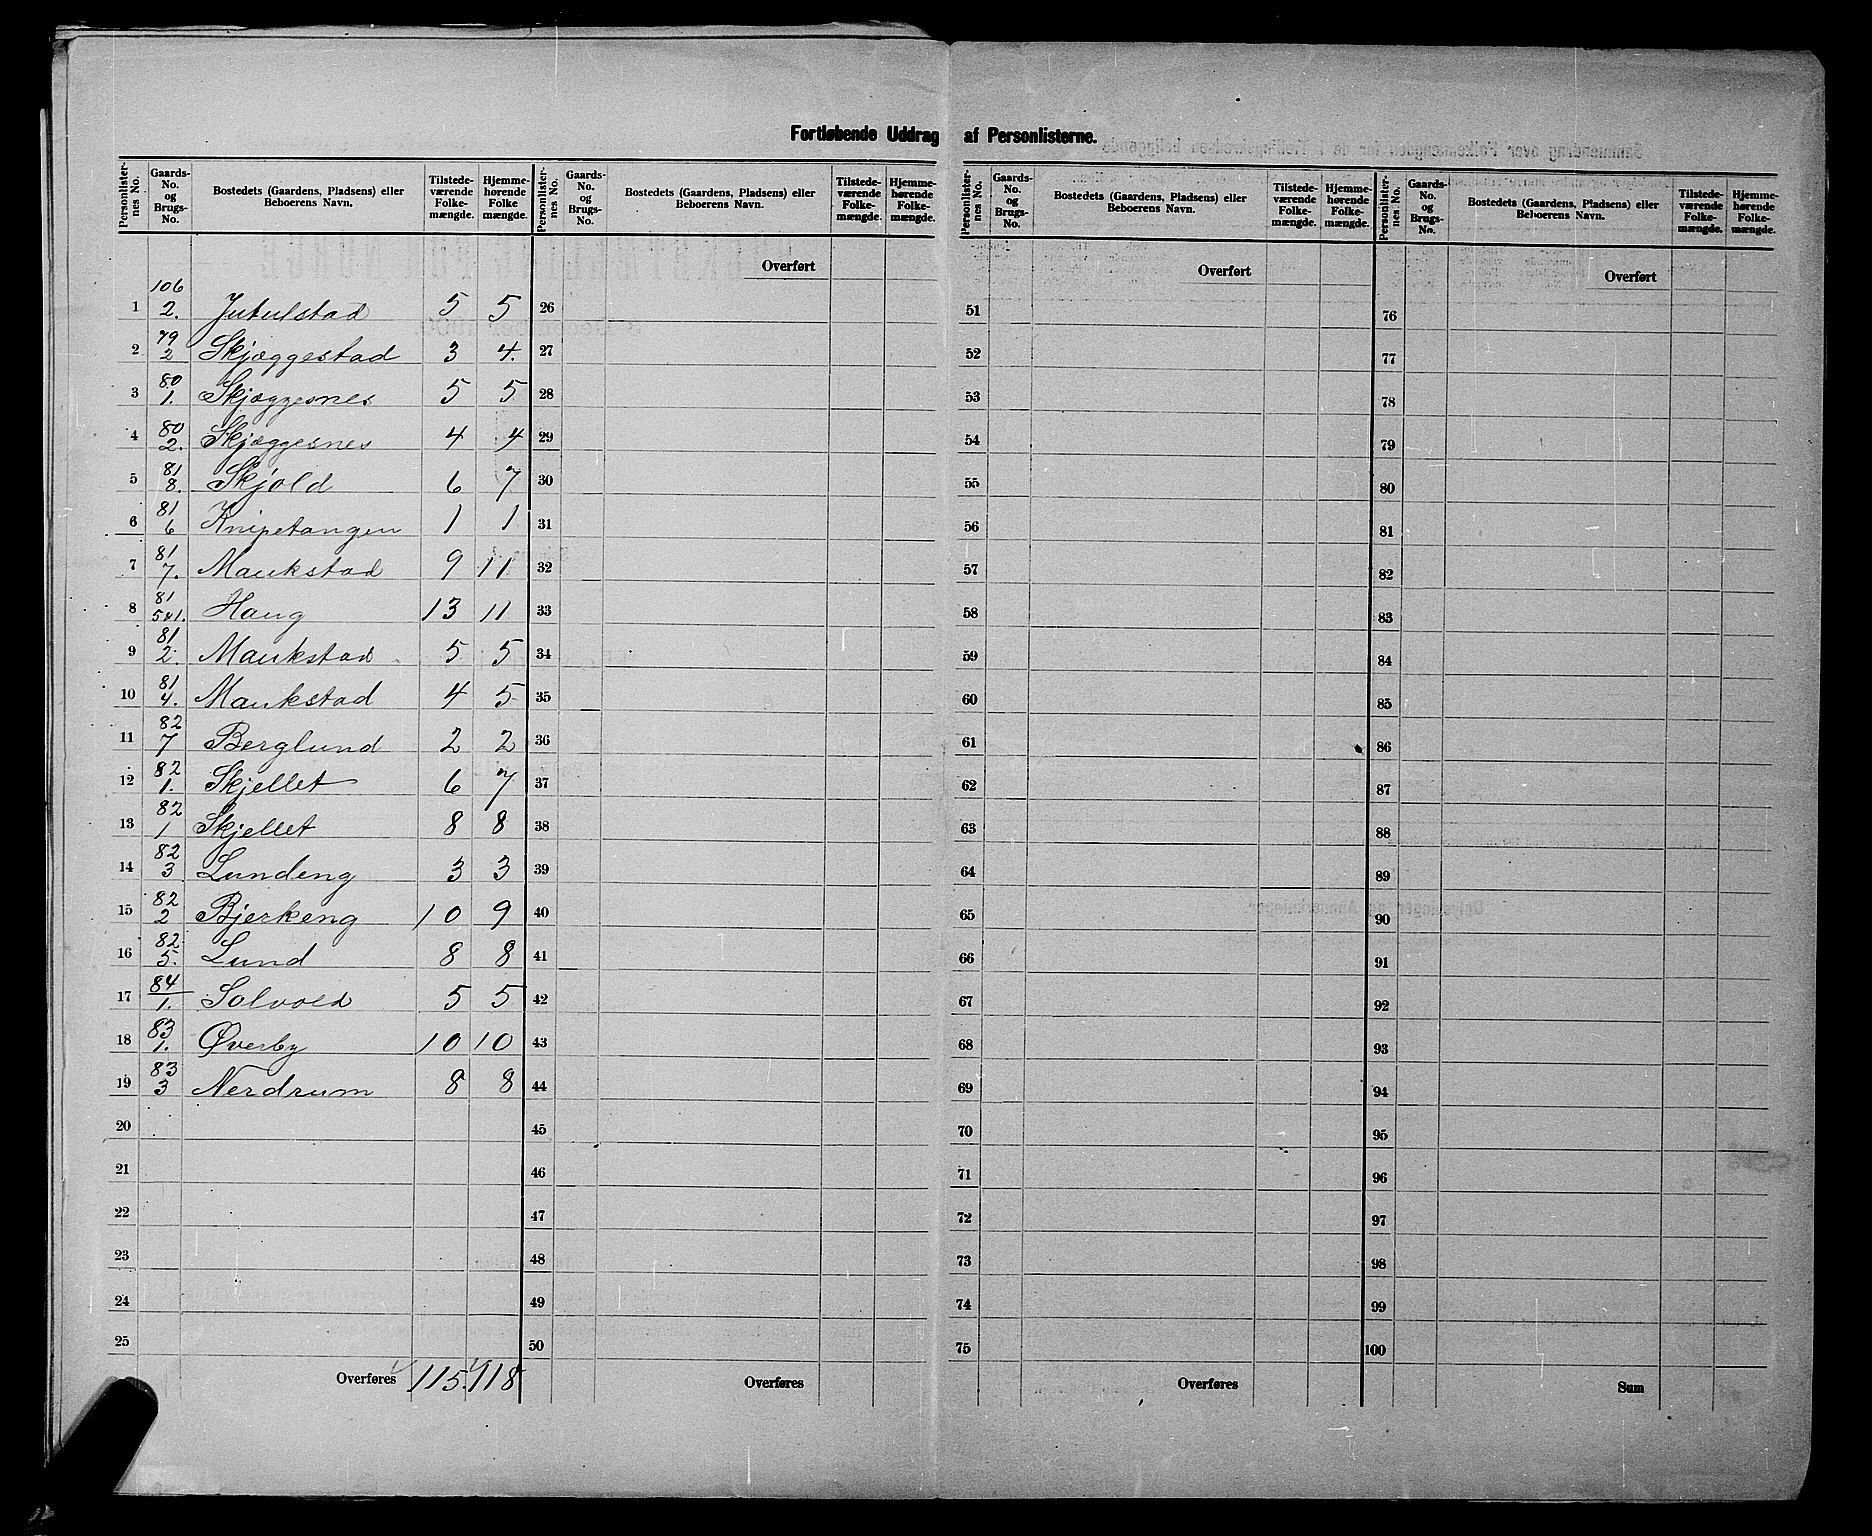 Fortløbende Uddrag af Personlisterne.
Personlister-nes No. | Gaards-No. og Brugs-No. | Bostedets (Gaardens, Pladsens) eller Beboerens Navn. | Tilstede-værende Folke-mængde. | Hjemme-hørende Folke mængde.
1 | 106 2. | Jutulstad | 5 | 5
2 | 79 2 | Skjæggestad | 3 | 4.
3 | 80 1. | Skjæggesnes | 5 | 5
4 | 80 2. | Skjæggesnes | 4 | 4
5 | 81 8. | Skjold | 6 | 7
6 | 81 6 | Knipetangen | 1 | 1
7 | 81 7. | Maukstad | 9 | 11
8 | 81 5 & 1. | Haug | 13 | 11
9 | 81 2. | Maukstad | 5 | 5
10 | 81 4. | Maukstad | 4 | 5
11 | 82 7 | Berglund | 2 | 2
12 | 82 1. | Skjellet | 6 | 7
13 | 82 1 | Skjellet | 8 | 8
14 | 82 3 | Lundeng | 3 | 3
15 | 82 2 | Bjerkeng | 10 | 9
16 | 82 5. | Lund | 8 | 8
17 | 84 1. | Solvold | 5 | 5
18 | 83 1. | Øverby | 10 | 10
19 | 83 3 | Nerdrum | 8 | 8
20
21
22
23
24
25
Overføres 115. 118
Personlister-nes No. | Gaards-No. og Brugs-No. | Bostedets (Gaardens, Pladsens) eller Beboerens Navn. | Tilstede-værende Folke-mængde. | Hjemme-hørende Folke-mængde.
Overført
26
27
28
29
30
31
32
33
34
35
36
37
38
39
40
41
42
43
44
45
46
47
48
49
50
Overføres
Personlister-nes No. | Gaards-No. og Brugs-No. | Bostedets (Gaardens, Pladsens) eller Beboerens Navn. | Tilstede-værende Folke-mængde. | Hjemme-hørende Folke-mængde.
Overført
51
52
53
54
55
56
57
58
59
60
61
62
63
64
65
66
67
68
69
70
71
72
73
74
75
Overføres
Personlister-nes No. | Gaards-No. og Brugs-No. | Bostedets (Gaardens, Pladsens) eller Beboerens Navn. | Tilstede-værende Folke-mængde. | Hjemme-hørende Folke-mængde.
Overført
76
77
78
79
80
81
82
83
84
85
86
87
88
89
90
91
92
93
94
95
96
97
98
99
100
Sum